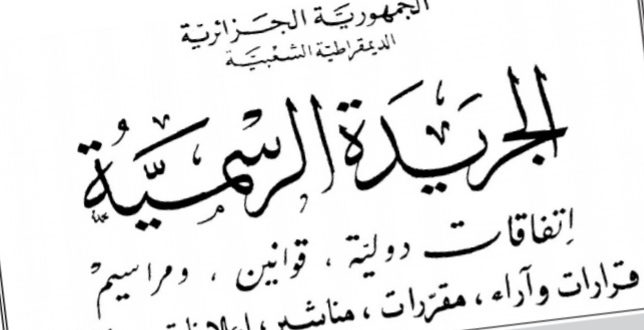 الجمهورية الجزائرية
الديمقراطية الشعبية
الجريدة الرسمية
إتفاقات دولية ، قوانين ، ومراسيم
قرارات وآراء ، مقررات ، مناشير ،